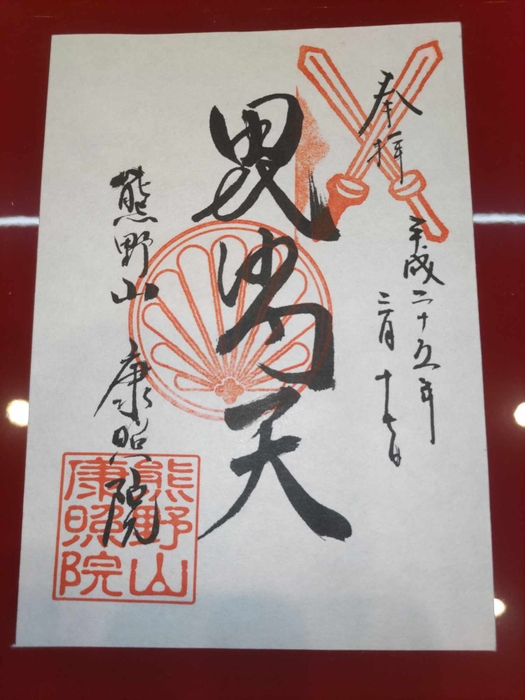 奉拝
平成二十五年
二月十七日
毘沙門天
熊野山 康照院
熊野山
康照院